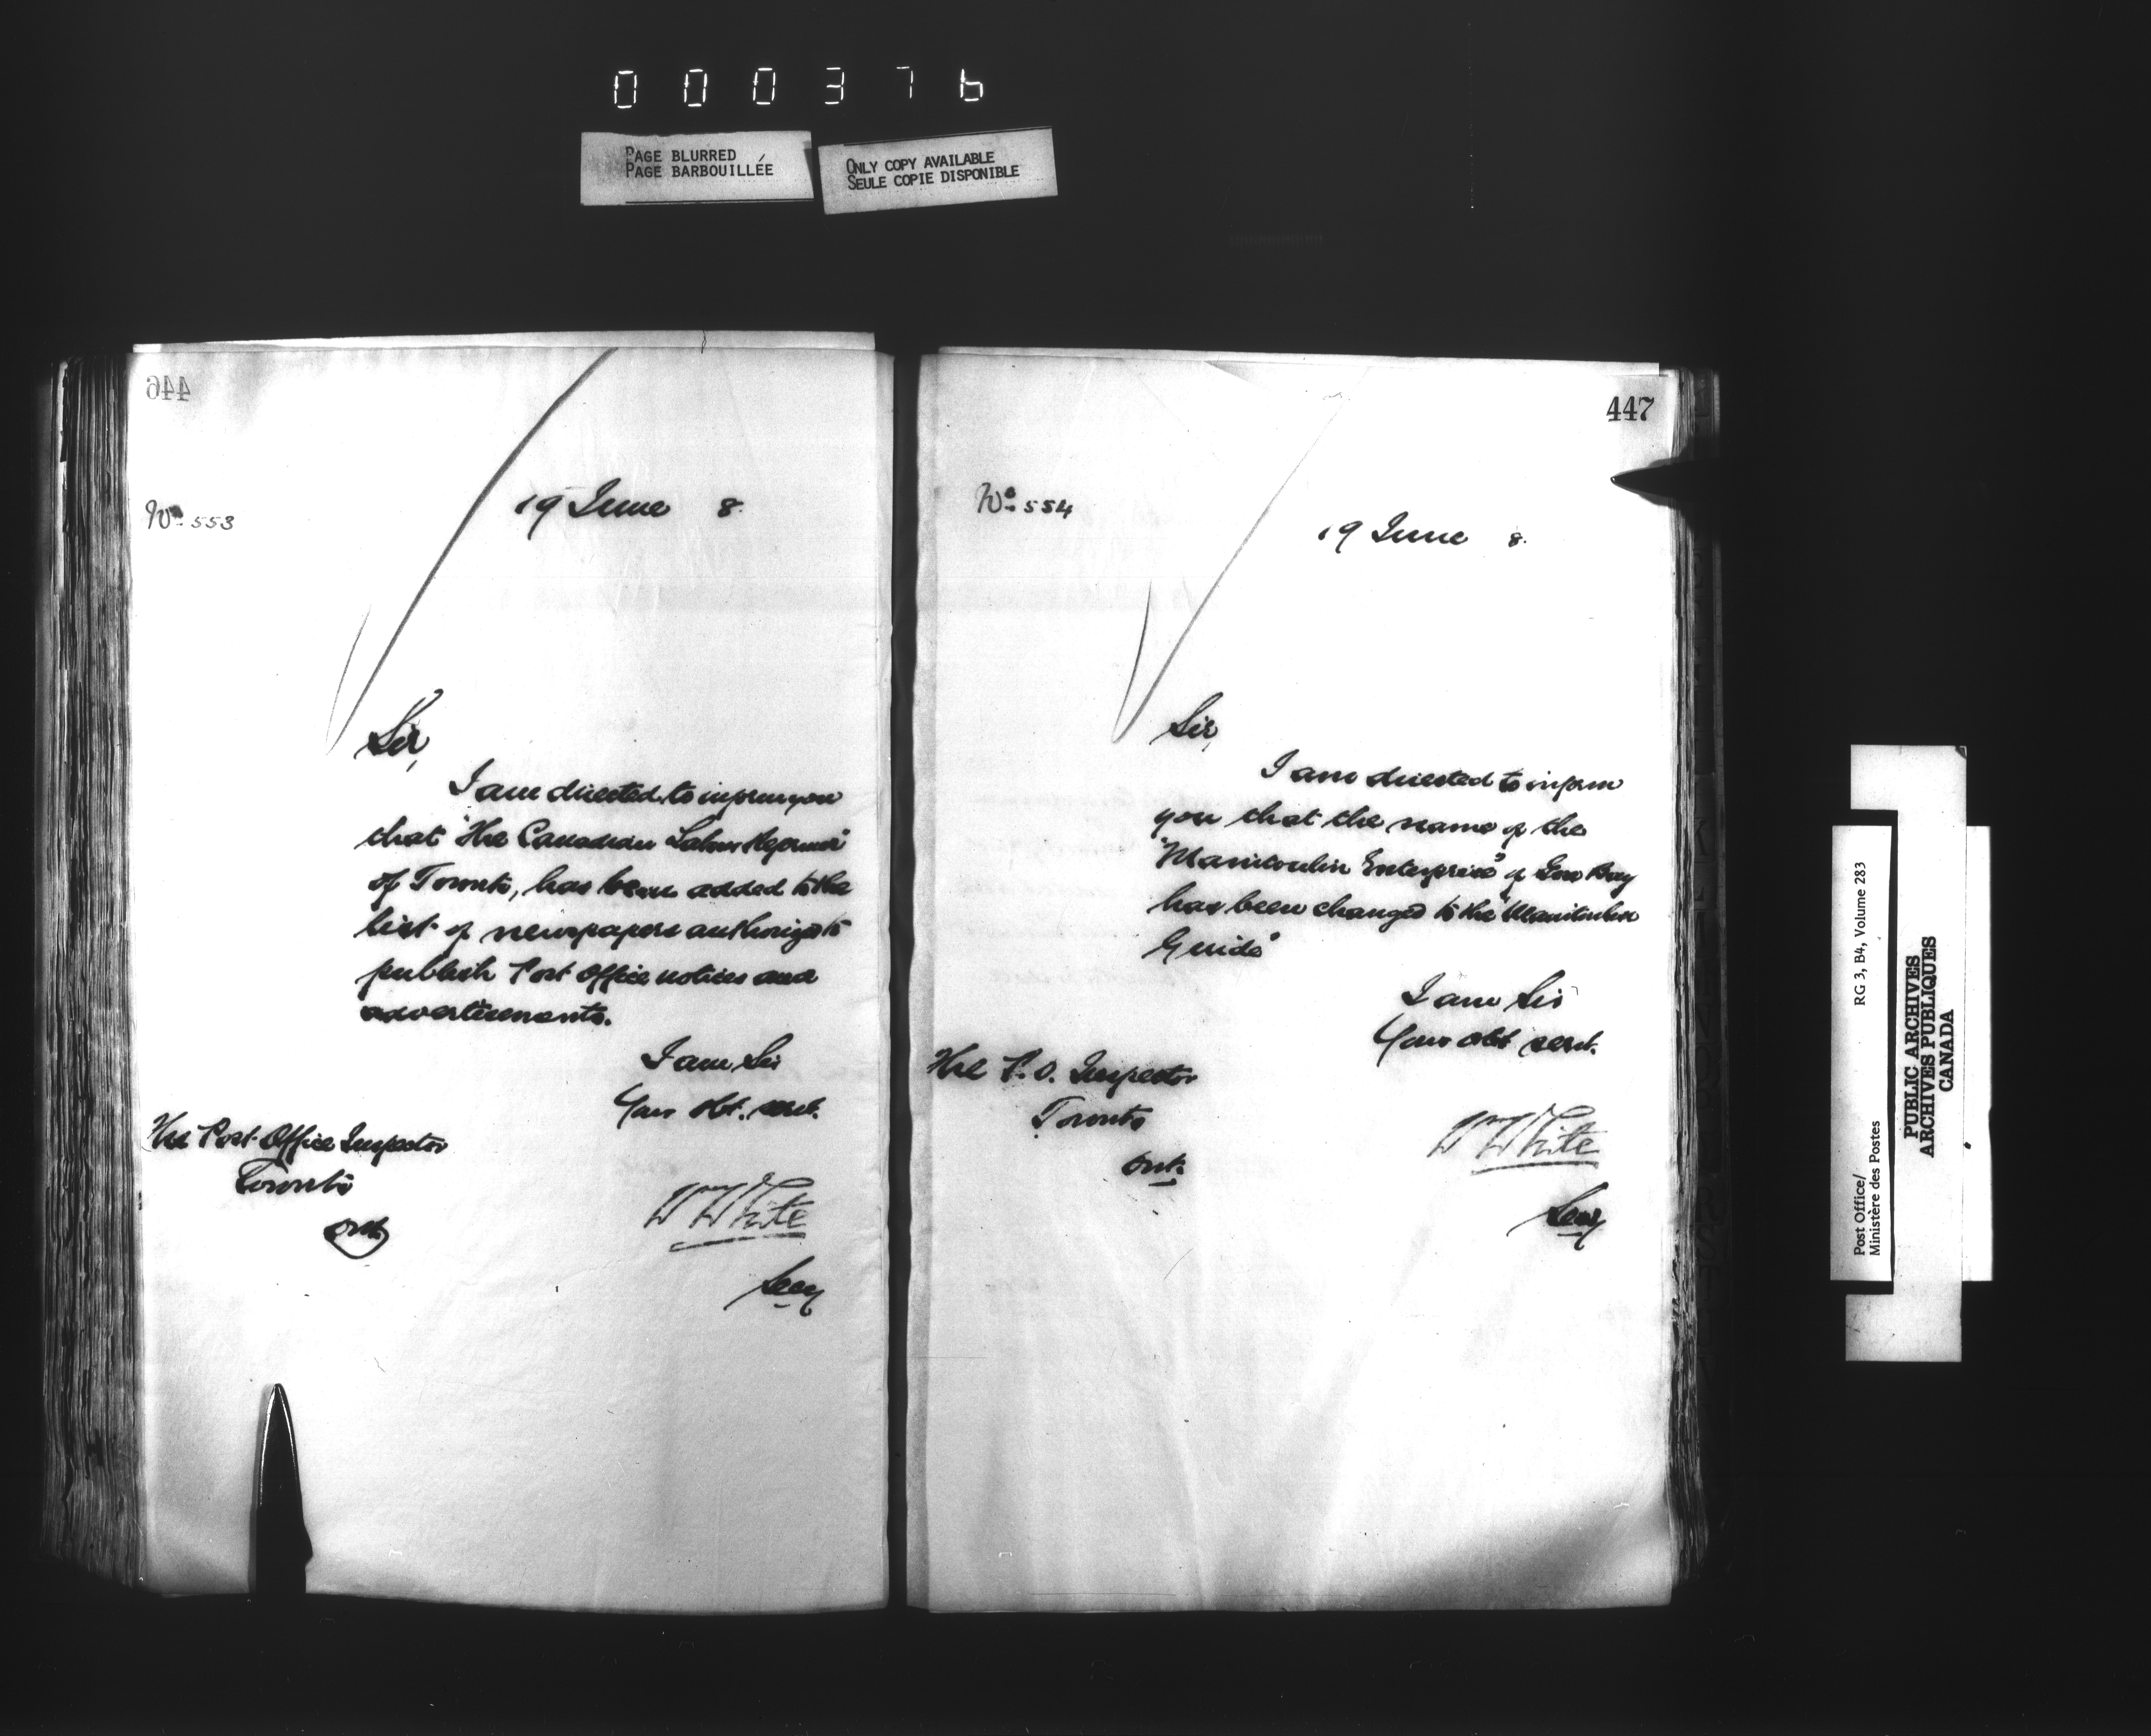 000376
PAGE BLURRED
PAGE BARBOUILLÉE
ONLY COPY AVAILABLE
SEULE COPIE DISPONIBLE
446
No. 553
19 June 8.
Sir,
I am directed to inform you
that "The Canadian Labor Reformer"
of Toronto, has been added to the
list of newspapers authorized to
publish Post Office notices and
advertisements.
I am Sir
Your obt. servt.
The Post Office Inspector
Toronto
Ont.
W White
Secy
447
No. 554
19 June 8.
Sir,
I am directed to inform
you that the name of the
"Manitoulin Enterprise" of Gore Bay
has been changed to the "Manitoulin
Guide"
I am Sir
Your obt servt.
The P.O. Inspector
Toronto
Ont.
W White
Secy
Post Office/
Ministère des Postes
RG 3, B4, Volume 283
PUBLIC ARCHIVES
ARCHIVES PUBLIQUES
CANADA